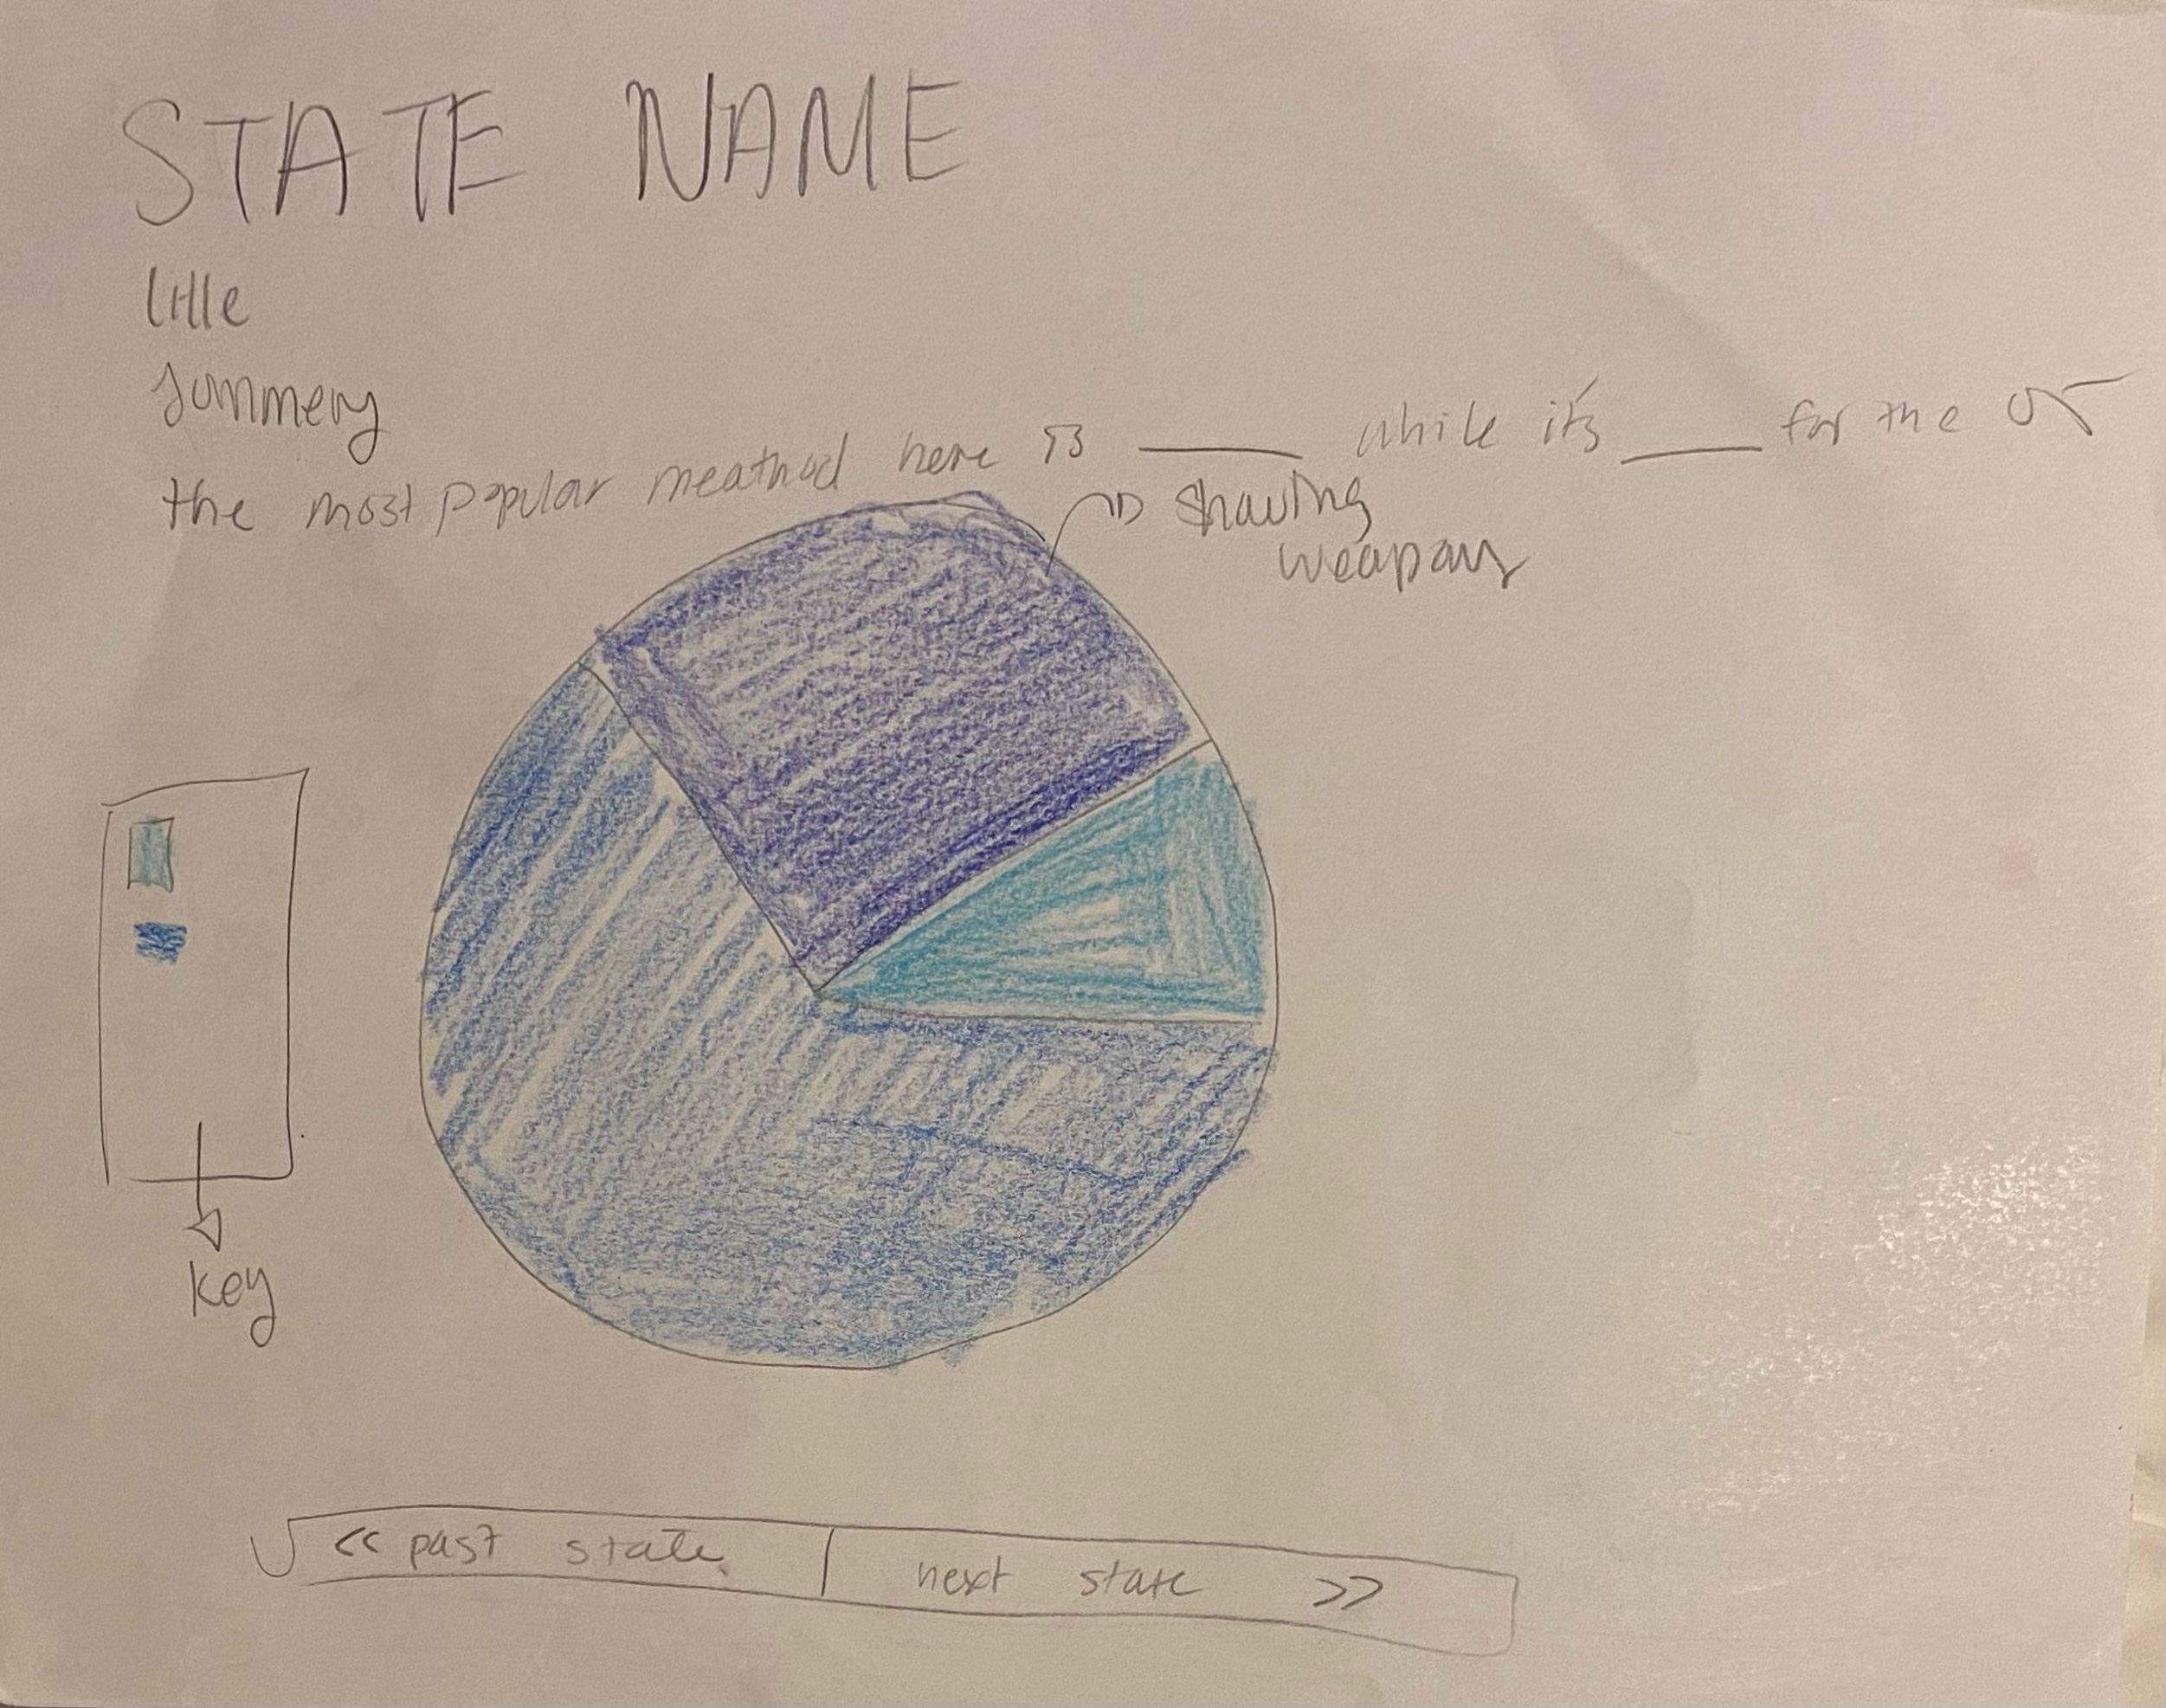 STATE NAME
little
summery
the most popular meathod here is ____ while it's ____ for the US
shaving
weapons
key
<< past state
next state >>